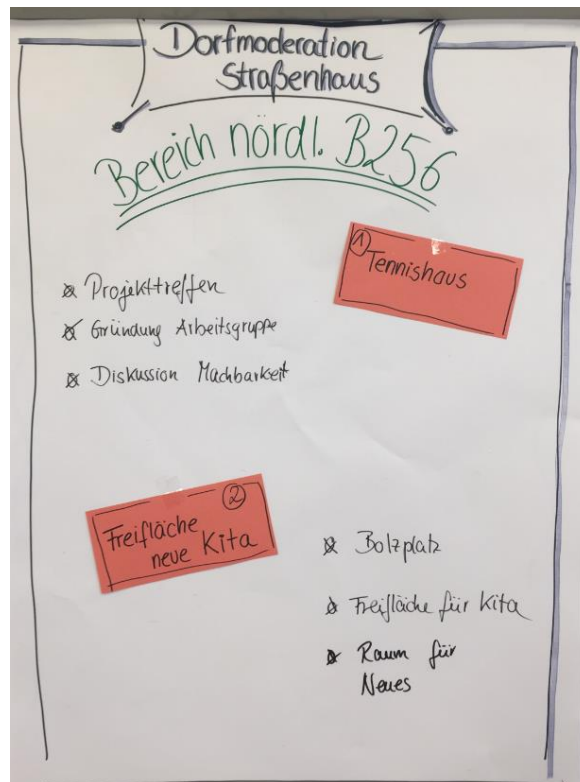 Dorfmoderation
Straßenhaus
Bereich nördl. B256
① Tennishaus
Projekttreffen
Gründung Arbeitsgruppe
Diskussion Machbarkeit
②
Freifläche
neue Kita
Bolzplatz
Freifläche für Kita
Raum für
Neues